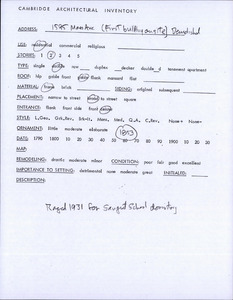 CAMBRIDGE ARCHITECTURAL INVENTORY
ADDRESS: 1595 Mass Ave (First building on site) Demolished
USE: residential commercial religious
STORIES: 1 2 3 4 5
TYPE: single double row duplex decker tenement apartment
ROOF: hip gable front flank mansard flat
MATERIAL: frame brick SIDING: original subsequent
PLACEMENT: narrow to street broad to street square
ENTRANCE: flank front side
STYLE:
ORNAMENT: little moderate elaborate 1853
DATE: 1790 1800 10 20 30 40 50 60 70 80 90 1900 10 20 30
MAP:
REMODELING: drastic moderate minor CONDITION: poor fair good excellent
IMPORTANCE TO SETTING: detrimental none moderate great INITIALED:
DESCRIPTION:
Razed 1931 for Sargent School dormitory